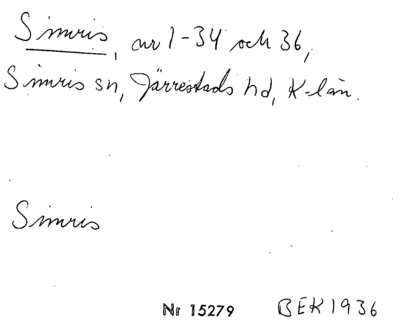 Simris, nr 1-34 och 36,
Simris sn, Järrestads hd, K-län.
Simris
Nr 15279 BEK 1936